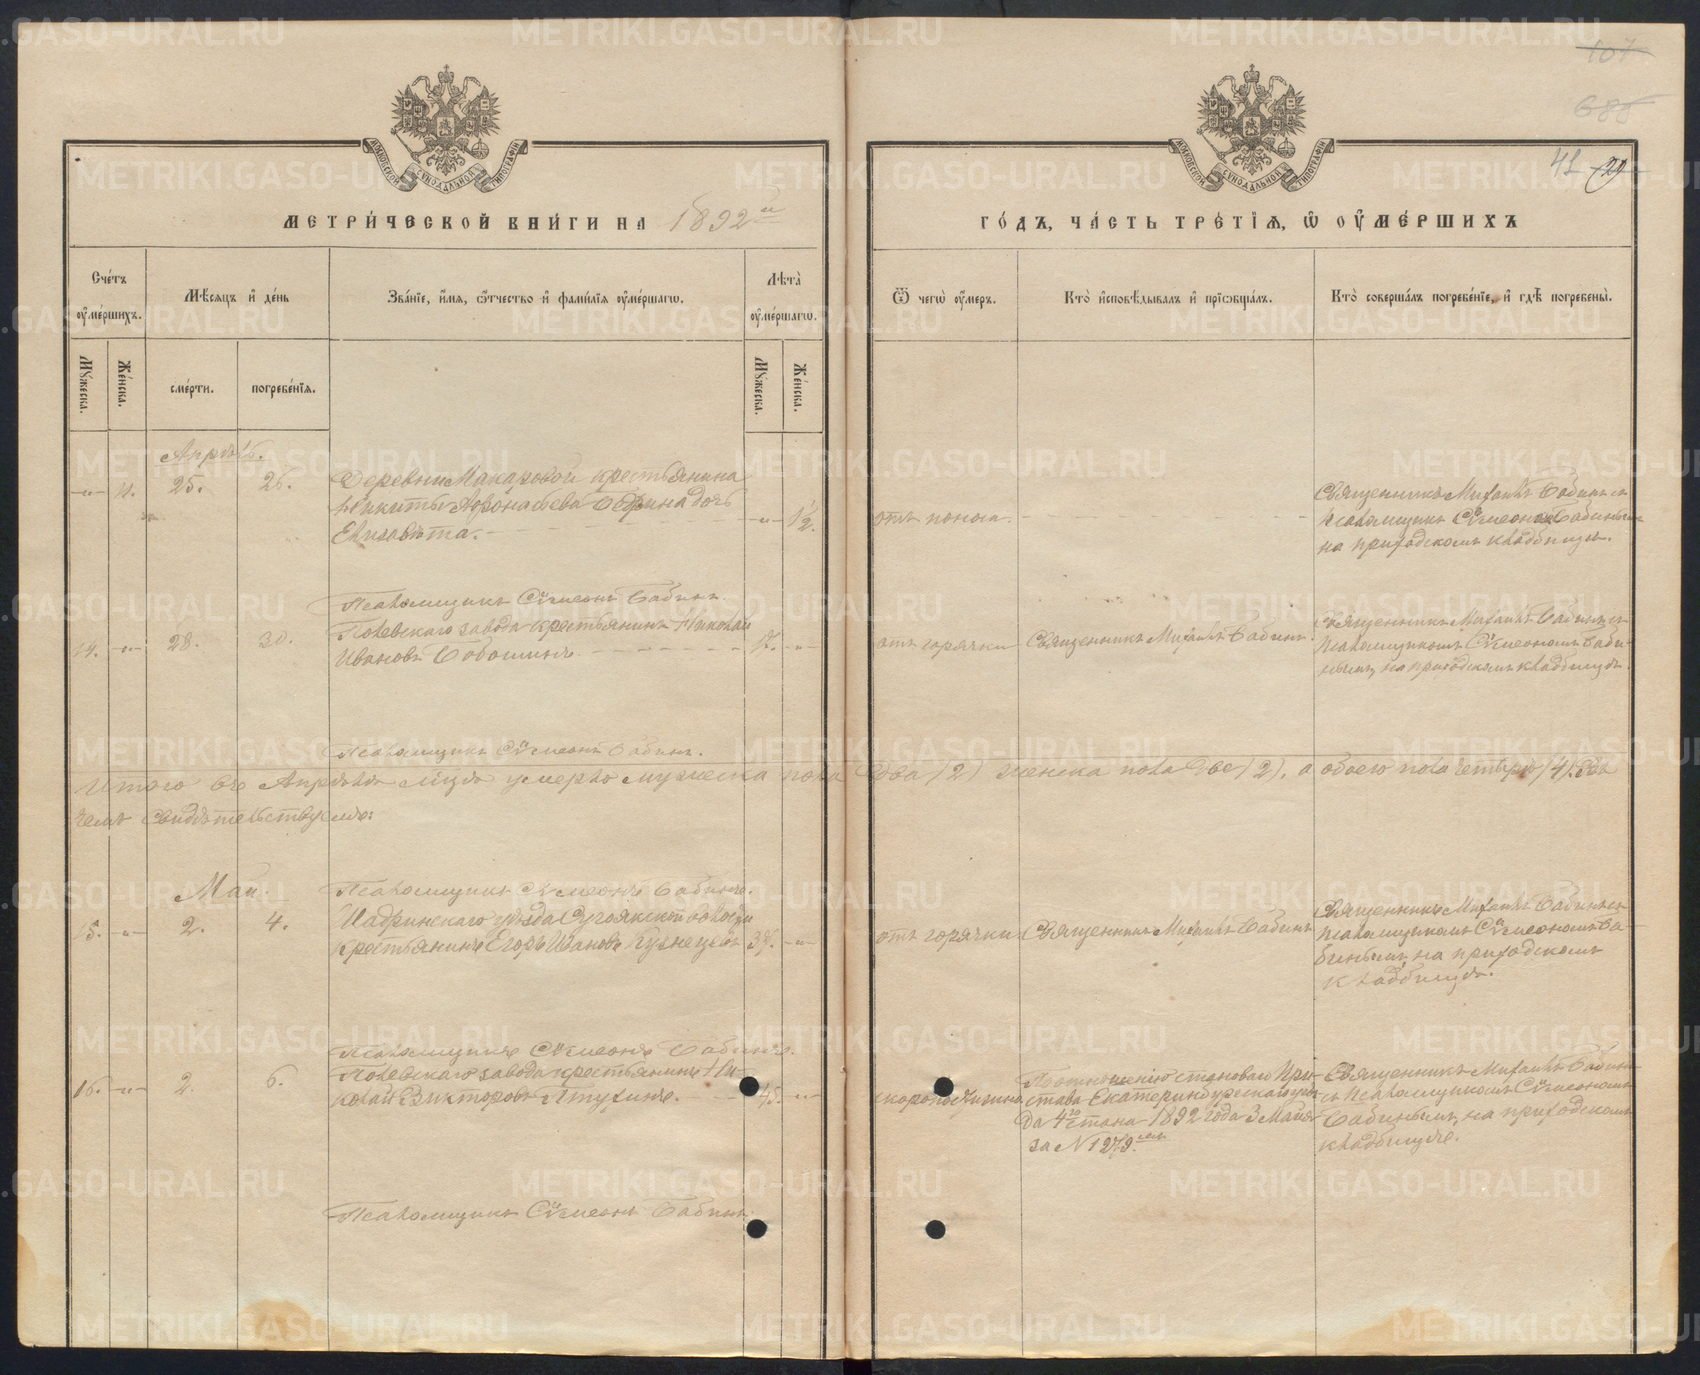 107
688
41 29
МЕТРИ́ЧЕСКОЙ КНИ́ГИ НА 1892й
ГО́ДЪ, ЧА́СТЬ ТРЕ́ТІЯ, Ѿ ОУМЕ́РШИХЪ
Сче́тъ оуме́ршихъ.
Мѣ́сяцъ и де́нь
Зва́ніе, и́мя, о́тчество и фами́лія оуме́ршагѡ.
Лѣта̀ оуме́ршагѡ.
Му́жеска.
Же́нска.
сме́рти.
погребе́нія.
Му́жеска.
Же́нска.
Ѿ чегѡ̀ оу́меръ.
Кто̀ исповѣ́дывалъ и прїѡбща́лъ.
Кто̀ соверша́лъ погребе́ніе, и гдѣ̀ погребены̀.
Апрѣль.
25. 26.
Деревни Макаровой крестьянина
Никиты
дочь
Елизавета.
1/2
отъ поноса.
Священникъ Михаилъ Бабинъ съ
Псаломщикъ Сѵмеономъ Бабинымъ
на приходскомъ кладбищѣ.
Псаломщикъ Сѵмеонъ Бабинъ.
14. 28. 30.
Полевскаго завода крестьянинъ Николай
Ивановъ
17.
отъ горячки
Священникъ Михаилъ Бабинъ.
Священникъ Михаилъ Бабинъ съ
Псаломщикомъ Сѵмеономъ Баби-
нымъ, на приходскомъ кладбищѣ.
Псаломщикъ Сѵмеонъ Бабинъ.
Итого въ Апрѣлѣ мцѣ умерло мужеска пола два (2) женска пола две (2), а обоего пола четыре (4).
чемъ свидѣтельствуемъ:
Псаломщикъ Сѵмеонъ Бабинъ.
Май.
15. 2. 4.
Шадринскаго уѣзда Сугоякской волости
крестьянинъ Егоръ Ивановъ Кузнецовъ
37.
отъ горячки
Священникъ Михаилъ Бабинъ
Священникъ Михаилъ Бабинъ съ
псаломщикомъ Сѵмеономъ Ба-
бинымъ, на приходскомъ
кладбищѣ.
Псаломщикъ Сѵмеонъ Бабинъ.
16. 2. 6.
Полевскаго завода крестьянинъ Ни-
колай Викторовъ Птухинъ.
45.
скоропостижно
По отношенію становаго При-
става Екатеринбургскаго уѣз-
да 4го стана 1892 года 3 Мая
за N 1279.
Священникъ Михаилъ Бабинъ
съ Псаломщикомъ Сѵмеономъ
Бабинымъ, на приходскомъ
кладбищѣ.
Псаломщикъ Сѵмеонъ Бабинъ.
METRIKI.GASO-URAL.RU